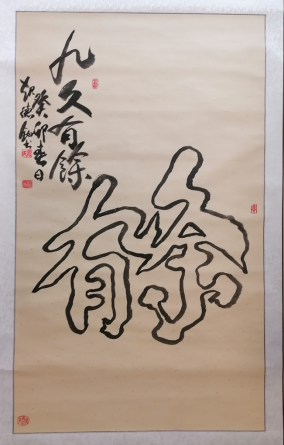 九久有餘
癸卯春日
有余